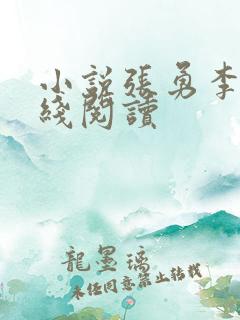 小說張勇李
綫閱讀
龍墨璃
未经同意禁止转载